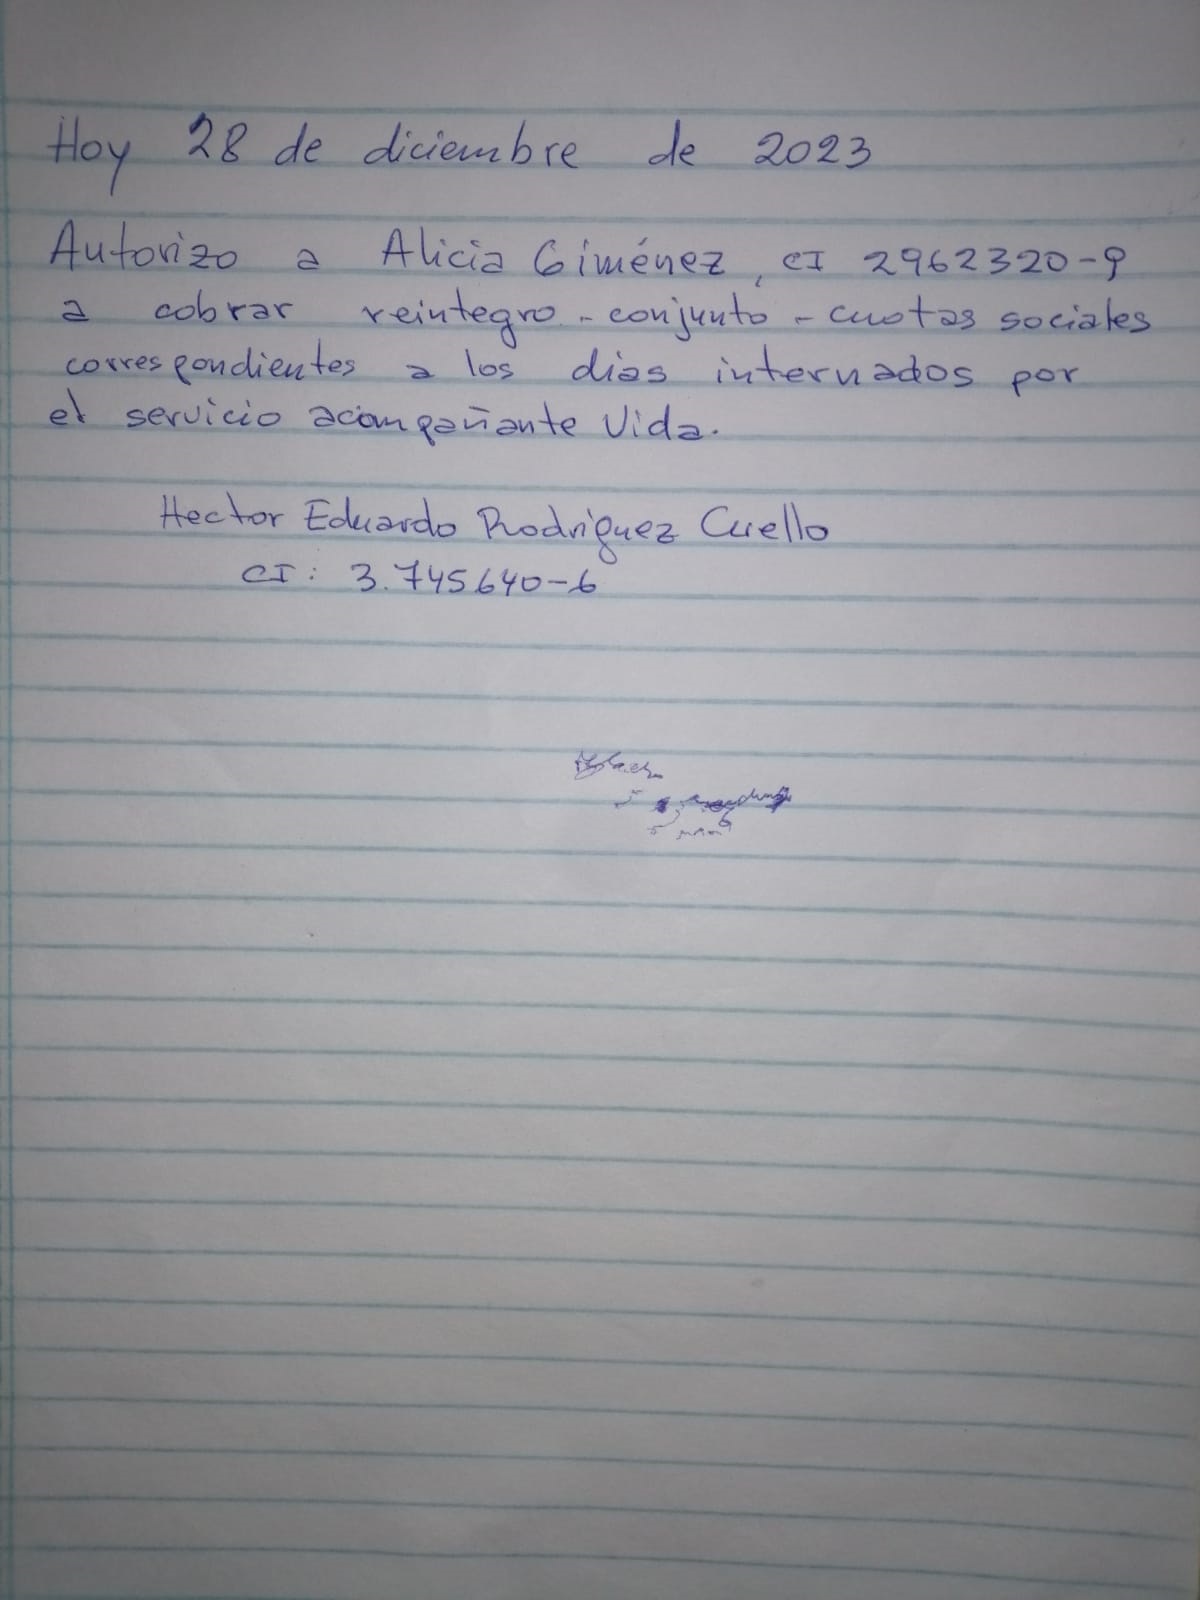 Hoy 28 de diciembre de 2023
Autorizo a Alicia Giménez, CI 2962320-9
a cobrar reintegro - conjunto - cuotas sociales
correspondientes a los días internados por
el servicio acompañante Vida.
Hector Eduardo Rodriguez Cuello
CI: 3.745.640-6